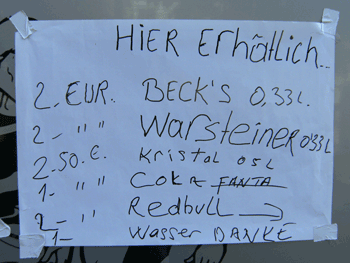 HiER Erhätlich...
2. EUR. BECK'S 0,33l.
2,- " " Warsteiner 0'33L
2.50.€. Kristal 05L
1- " " COKA FANTA
2-" Redbull →
1- Wasser DANKE